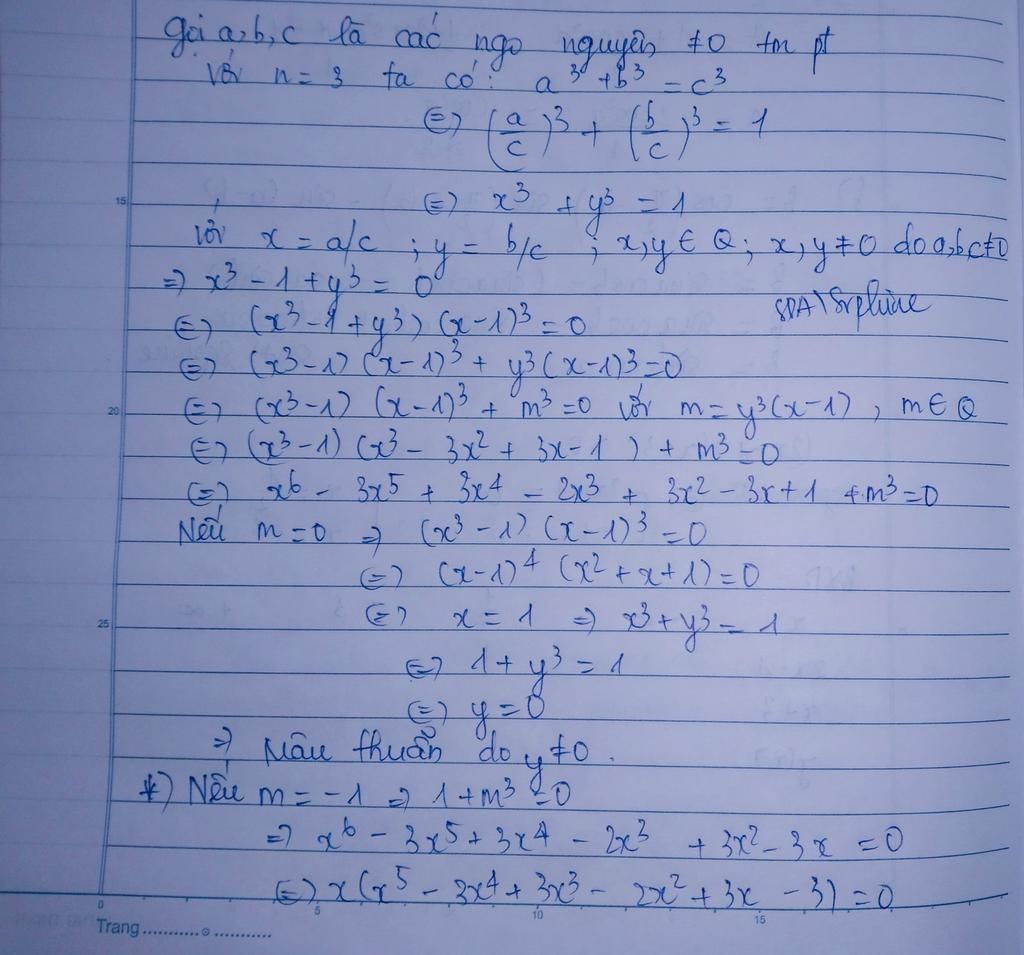 Gọi a,b,c là các ngo nguyên ≠0 tm pt
Với n=3 ta có: a³ + b³ = c³
⇔ (a/c)³ + (b/c)³ = 1
⇔ x³ + y³ = 1
15
với x = a/c ; y = b/c ; x,y ∈ Q ; x,y ≠ 0 do a,b,c≠0
⇒ x³ - 1 + y³ = 0
⇔ (x³ - 1 + y³) (x-1)³ = 0
⇔ (x³-1) (x-1)³ + y³(x-1)³ = 0
20
⇔ (x³-1) (x-1)³ + m³ = 0 với m = y³(x-1) , m ∈ Q
⇔ (x³-1) (x³ - 3x² + 3x - 1 ) + m³ = 0
⇔ x⁶ - 3x⁵ + 3x⁴ - 2x³ + 3x² - 3x + 1 + m³ = 0
Nếu m = 0 ⇒ (x³-1) (x-1)³ = 0
⇔ (x-1)⁴ (x² + x + 1) = 0
25
⇔ x = 1 ⇒ x³ + y³ = 1
⇔ 1 + y³ = 1
⇔ y = 0
⇒ Mâu thuẫn do y ≠ 0.
*) Nếu m = -1 ⇒ 1 + m³ = 0
⇒ x⁶ - 3x⁵ + 3x⁴ - 2x³ + 3x² - 3x = 0
⇔ x(x⁵ - 3x⁴ + 3x³ - 2x² + 3x - 3) = 0
0 5 10 15
Trang